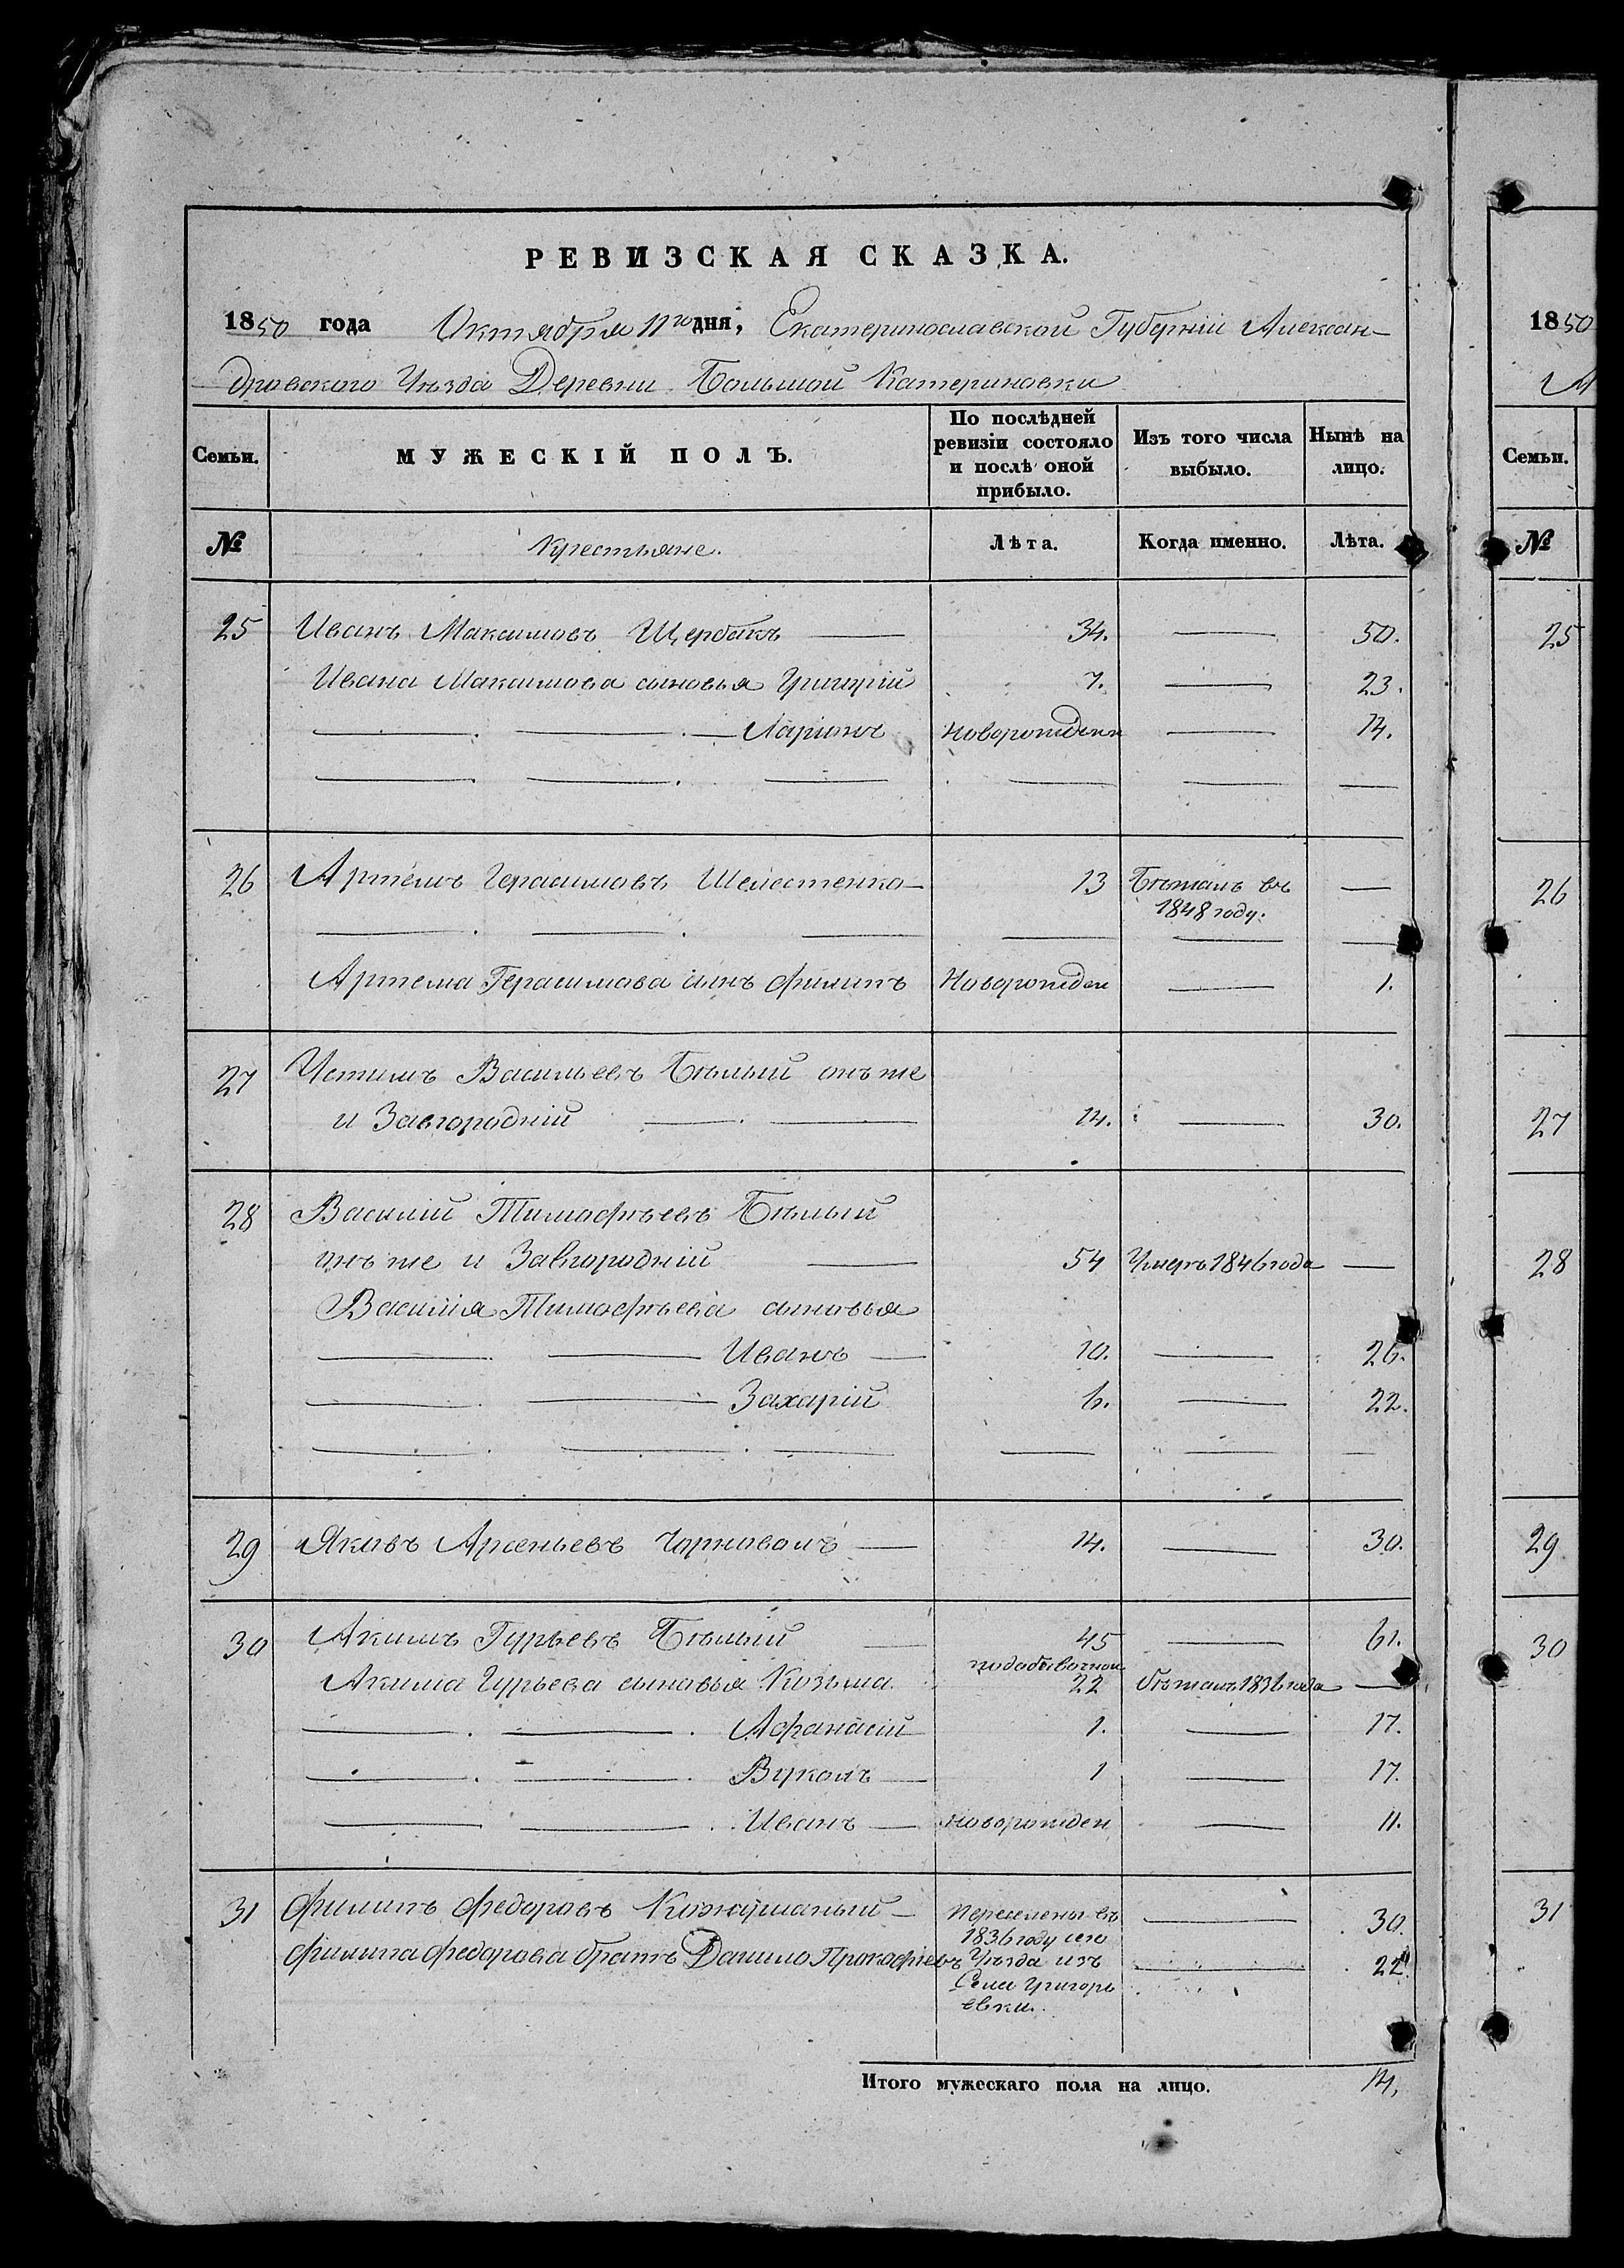 РЕВИЗСКАЯ СКАЗКА.
1850 года Октября 11го дня, Екатеринославской Губерніи Алексан-
дровского Уѣзда Деревни Большой Катериновки
Семьи. МУЖЕСКІЙ ПОЛЪ. По послѣдней ревизіи состояло и послѣ оной прибыло. Изъ того числа выбыло. Нынѣ на лицо.
№ Крестьяне. Лѣта. Когда именно. Лѣта.
25 Иванъ Максимовъ Щербакъ — 34. — 50.
Ивана Максимова сыновья Григорій 7. — 23.
— . — . — Ларионъ новорожденн — 14.
— . — . — — — —
26 Артемъ Герасимовъ Шелестенко — 13 Бѣжалъ въ —
1848 году.
— . — . — — — —
Артема Герасимова сынъ Филипъ Новорожден — 1.
27 Устимъ Васильевъ Бѣлый онъ же
и Завгородній — . — 14. — 30.
28 Василій Тимофѣевъ Бѣлый
онъ же и Завгородній — 54 Умеръ 1846 года —
Василія Тимофѣева сыновья
— . — Иванъ — 10. — 26.
— . — Захарій 6. — 22.
— . — . — — — —
29 Яковъ Арсеньевъ Чорноволъ — 14. — 30.
30 Акимъ Гурьевъ Бѣлый — 45 — 61.
Акима Гурьева сыновья Козьма 22 бѣжалъ 1836 года —
— . — . Афанасій 1. — 17.
— . — . Вуколъ — 1 — 17.
— — . Иванъ — новорожден — 11.
31 Филипъ Федоровъ — Переселены въ — 30.
1836 году сего
Филипа Федорова братъ Данило Прокофіевъ Уѣзда изъ — 22.
Села Григорь
евки.
Итого мужескаго пола на лицо. 14.
1850
Семьи.
№
25
26
27
28
29
30
31